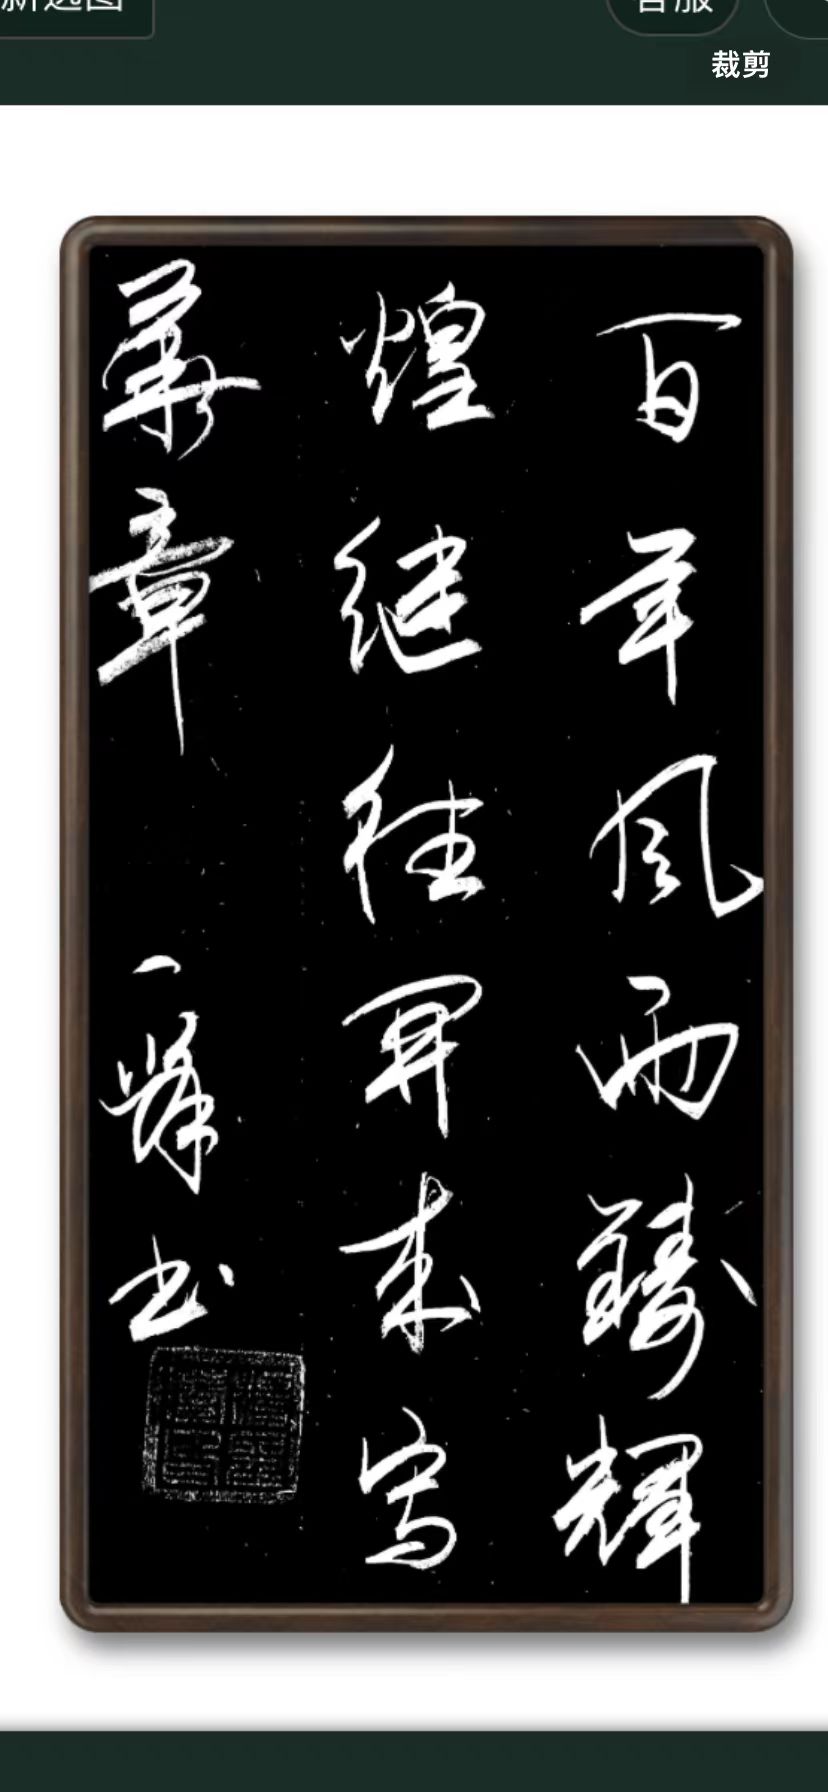 新选图
客服
裁剪
百年风雨铸辉
煌继往开来写
华章
一峰书